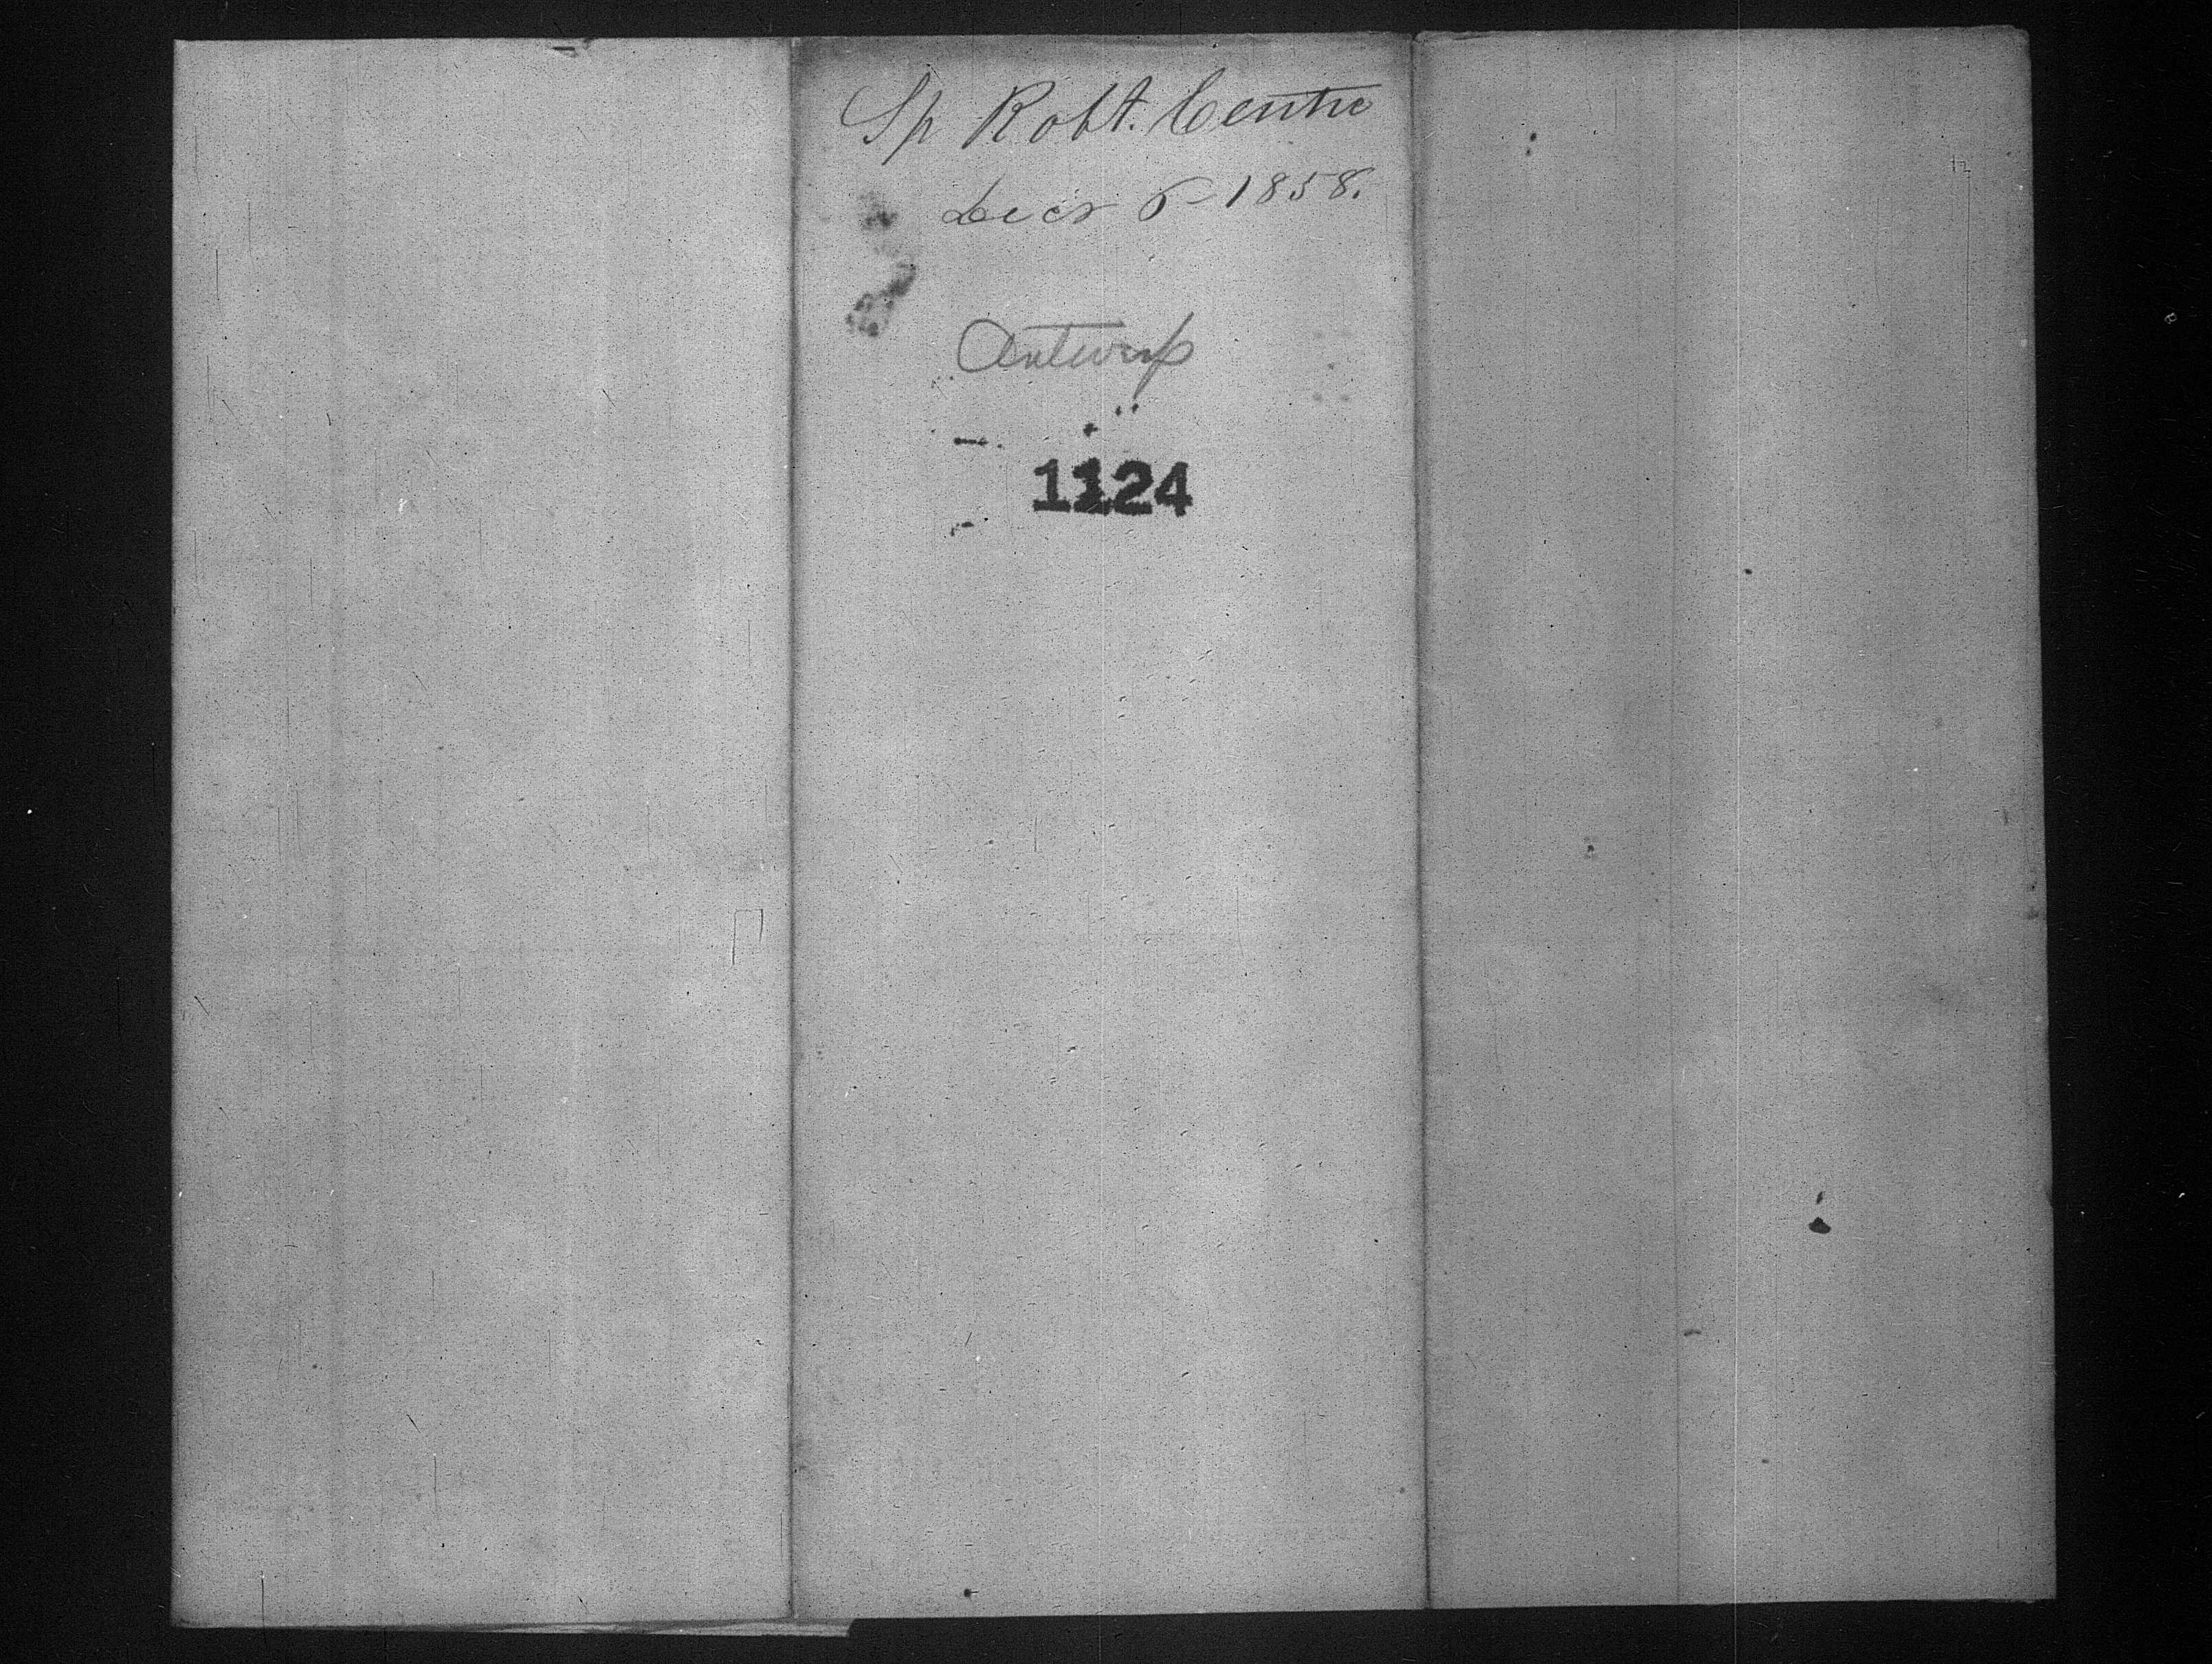 Sp Robt. Centre
Decr 6 - 1858.
Antwerp
1124